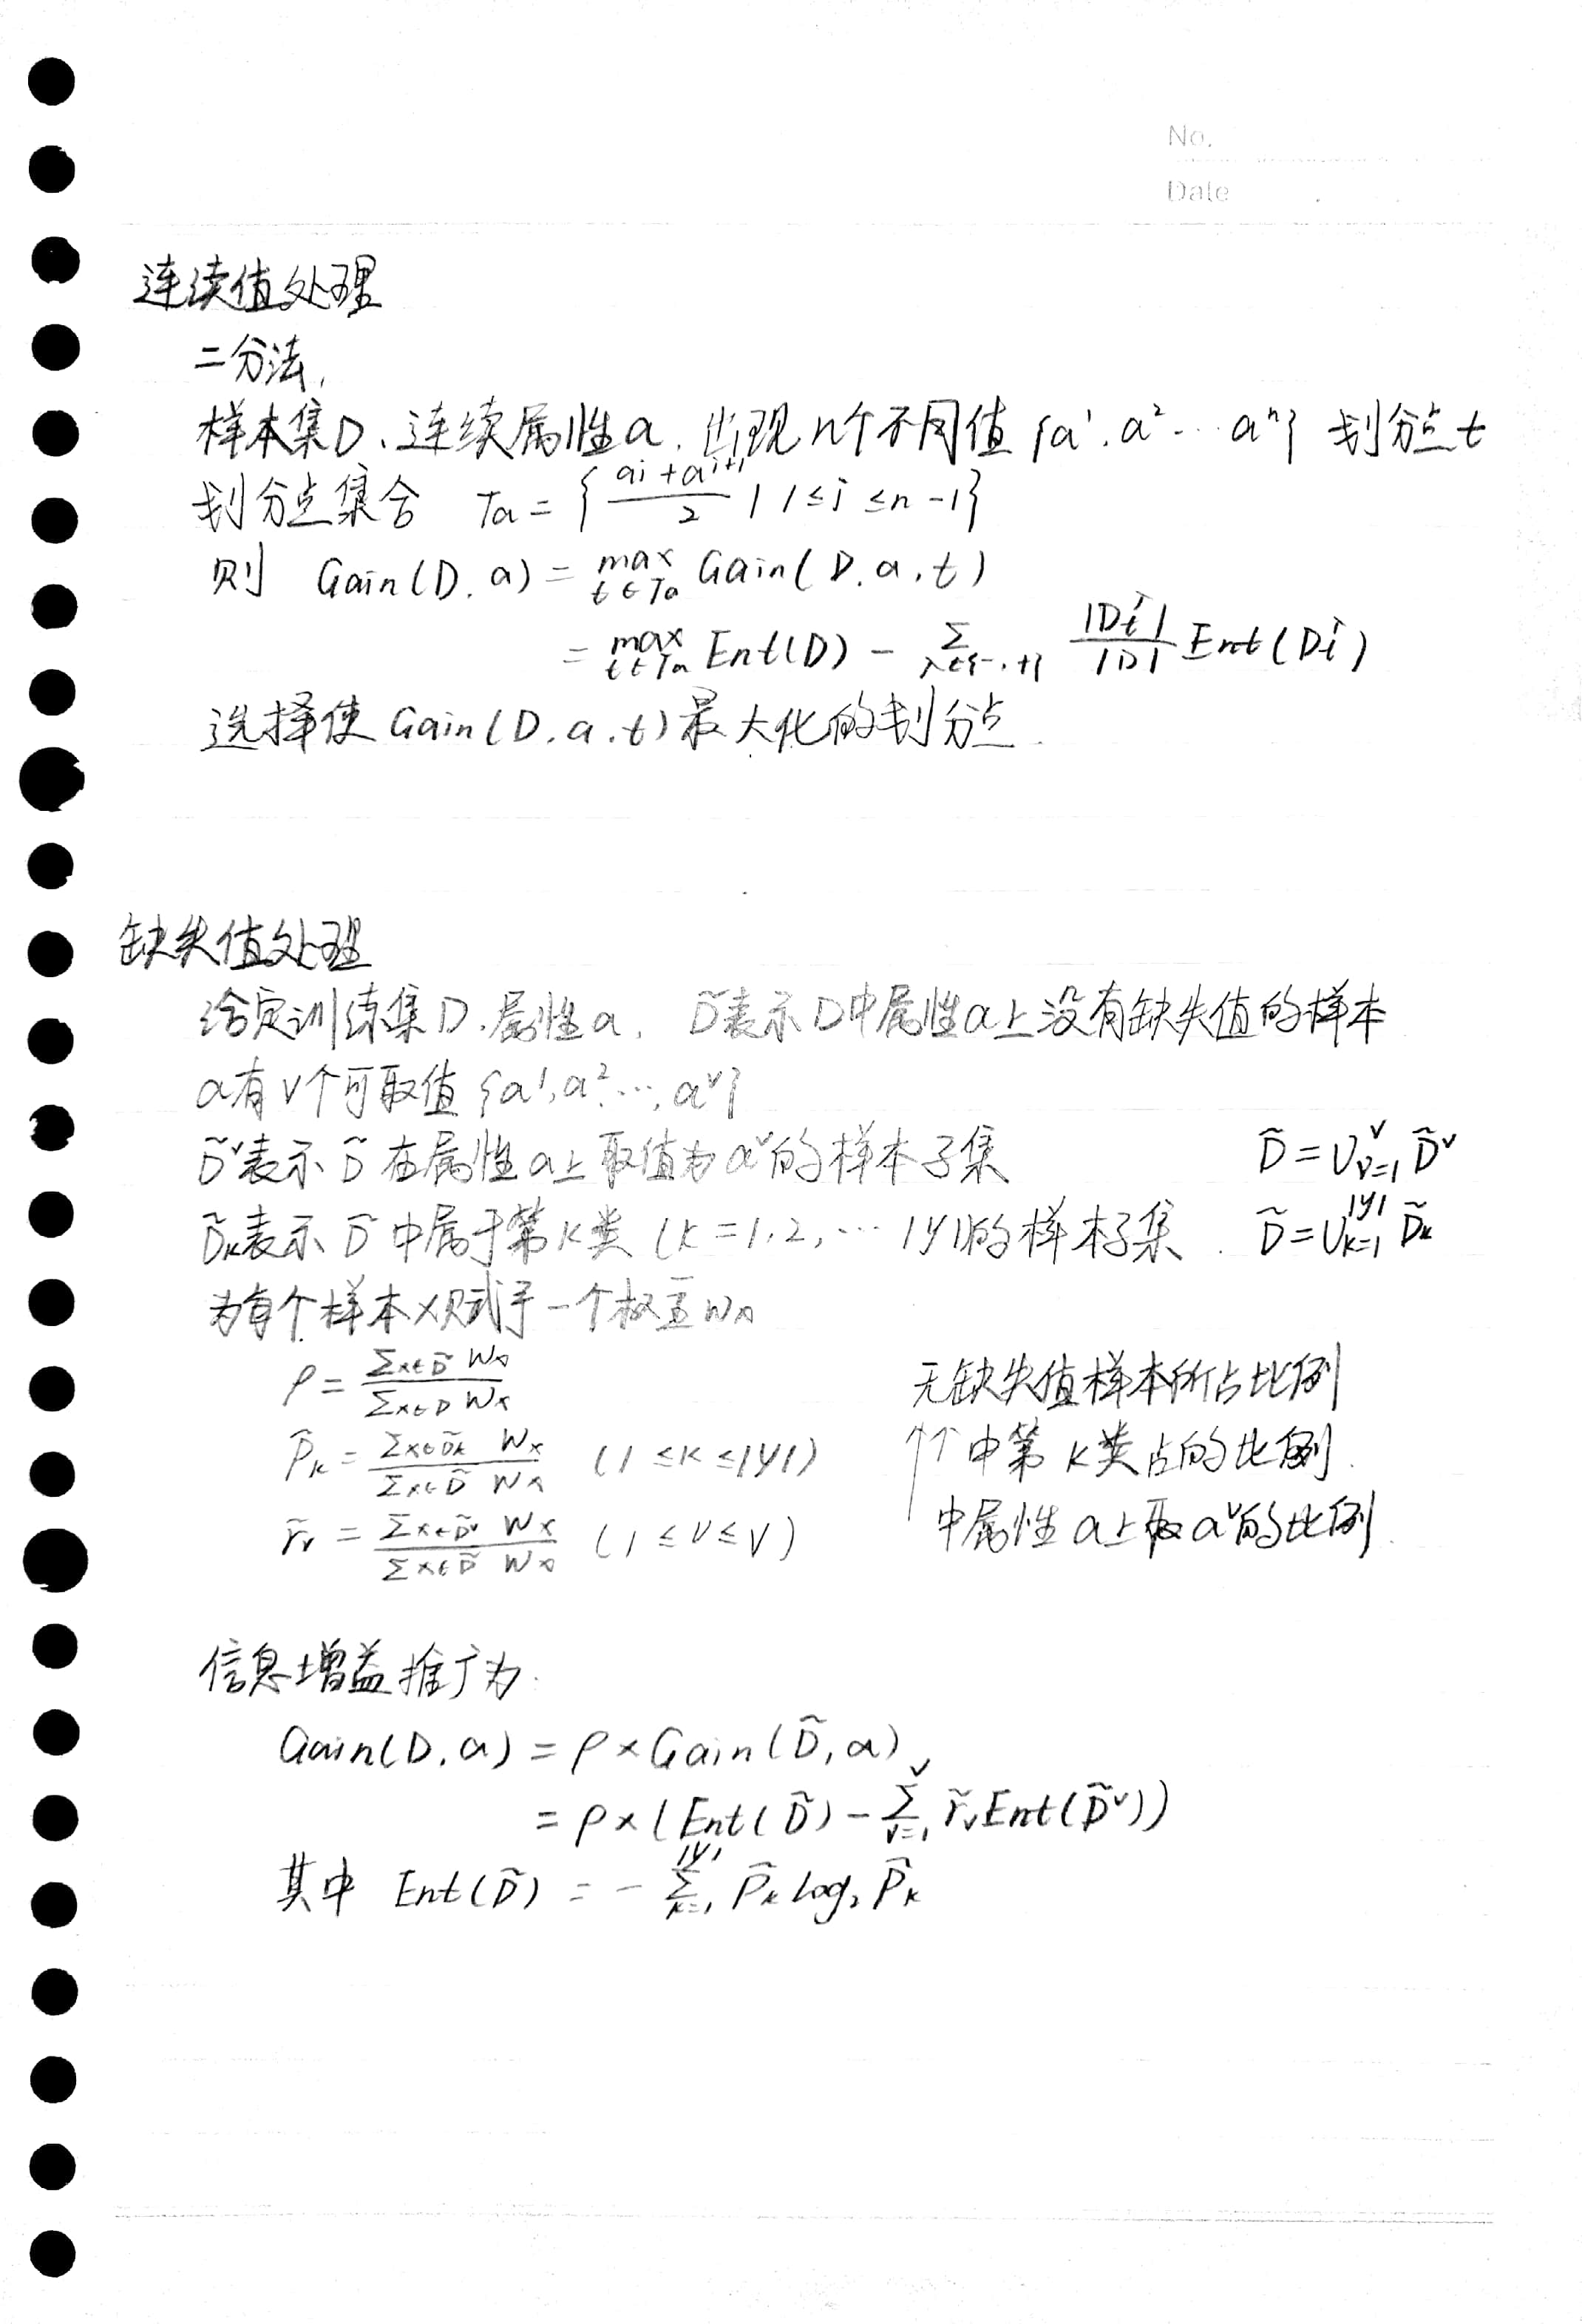 No.
Date
连续值处理
二分法,
样本集D、连续属性a, 出现n个不同值{a¹,a²…aⁿ} 划分点t
划分点集合 Ta = {(aⁱ+aⁱ⁺¹)/2 | 1≤i≤n-1}
则 Gain(D,a) = max_{t∈Ta} Gain(D,a,t)
= max_{t∈Ta} Ent(D) - Σ_{λ∈{-,+}} |D_t^λ|/|D| Ent(D_t^λ)
选择使Gain(D,a,t)最大化的划分点.
缺失值处理
给定训练集D、属性a, D̃表示D中属性a上没有缺失值的样本
a有V个可取值{a¹,a²,…,aⱽ}
D̃ᵛ表示D̃在属性a上取值为aᵛ的样本子集 D̃=∪_{v=1}^{V} D̃ᵛ
D̃ₖ表示D̃中属于第k类(k=1,2,…|y|)的样本子集. D̃=∪_{k=1}^{|y|} D̃ₖ
为每个样本x赋予一个权重Wx
ρ = Σ_{x∈D̃} Wx / Σ_{x∈D} Wx 无缺失值样本所占比例
p̃ₖ = Σ_{x∈D̃ₖ} Wx / Σ_{x∈D̃} Wx (1≤k≤|y|) ↑↑中第k类占的比例.
r̃ᵥ = Σ_{x∈D̃ᵛ} Wx / Σ_{x∈D̃} Wx (1≤v≤V) 中属性a上取aᵛ的比例.
信息增益推广为:
Gain(D,a) = ρ×Gain(D̃,a)
= ρ×(Ent(D̃) - Σ_{v=1}^{V} r̃ᵥ Ent(D̃ᵛ))
其中 Ent(D̃) = -Σ_{k=1}^{|y|} p̃ₖ log₂ p̃ₖ